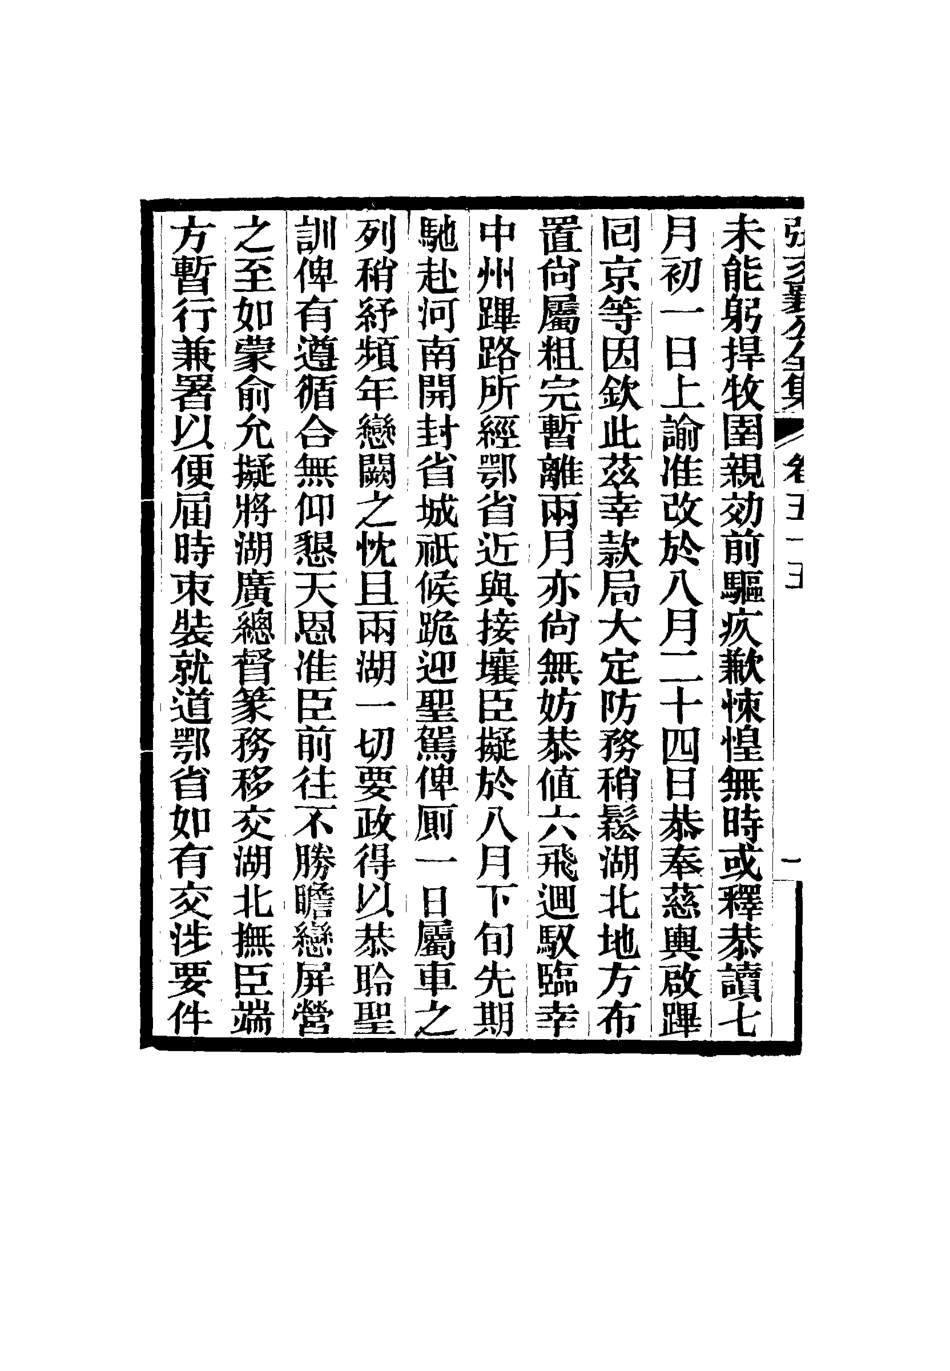 張文襄公全集 卷五十五 一
未能躬捍牧圉親効前驅疚歉悚惶無時或釋恭讀七
月初一日上諭准改於八月二十四日恭奉慈輿啟蹕
回京等因欽此茲幸款局大定防務稍鬆湖北地方布
置尙屬粗完暫離兩月亦尙無妨恭値六飛迴馭臨幸
中州蹕路所經鄂省近與接壤臣擬於八月下旬先期
馳赴河南開封省城祇候跪迎聖駕俾厠一日屬車之
列稍紓頻年戀闕之忱且兩湖一切要政得以恭聆聖
訓俾有遵循合無仰懇天恩准臣前往不勝瞻戀屏營
之至如蒙俞允擬將湖廣總督篆務移交湖北撫臣端
方暫行兼署以便屆時束裝就道鄂省如有交涉要件